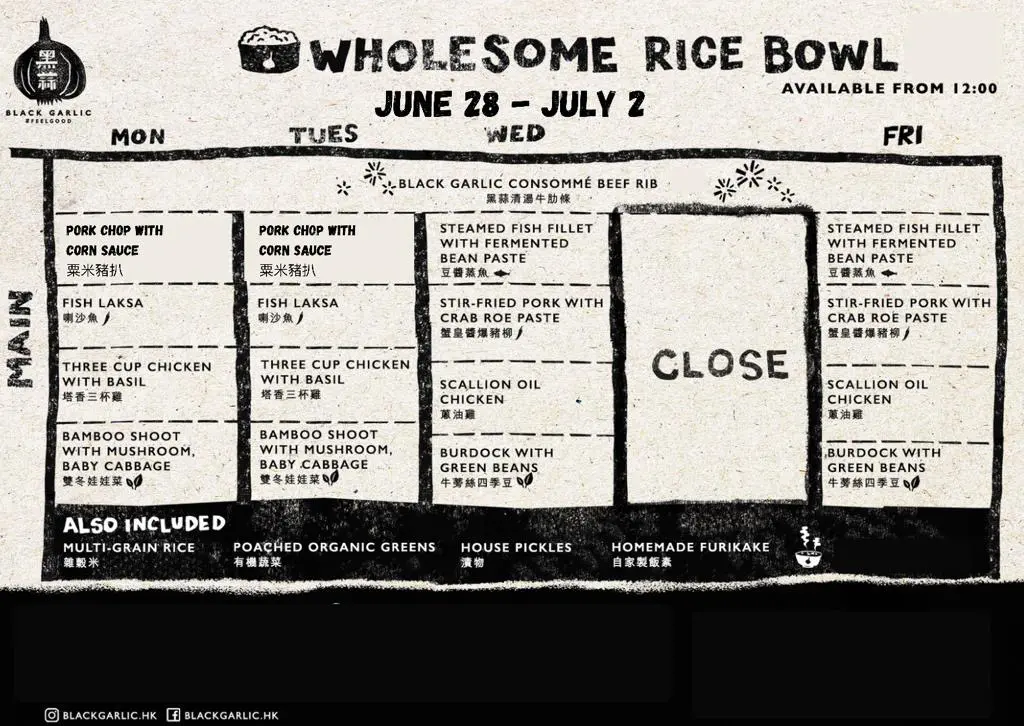 黑蒜
BLACK GARLIC
#FEELGOOD
WHOLESOME RICE BOWL
AVAILABLE FROM 12:00
JUNE 28 - JULY 2
MON
TUES
WED
FRI
MAIN
BLACK GARLIC CONSOMMÉ BEEF RIB
黑蒜清湯牛肋條
PORK CHOP WITH
CORN SAUCE
粟米豬扒
FISH LAKSA
喇沙魚
THREE CUP CHICKEN
WITH BASIL
塔香三杯雞
BAMBOO SHOOT
WITH MUSHROOM,
BABY CABBAGE
雙冬娃娃菜
PORK CHOP WITH
CORN SAUCE
粟米豬扒
FISH LAKSA
喇沙魚
THREE CUP CHICKEN
WITH BASIL
塔香三杯雞
BAMBOO SHOOT
WITH MUSHROOM,
BABY CABBAGE
雙冬娃娃菜
STEAMED FISH FILLET
WITH FERMENTED
BEAN PASTE
豆醬蒸魚
STIR-FRIED PORK WITH
CRAB ROE PASTE
蟹皇醬爆豬柳
SCALLION OIL
CHICKEN
蔥油雞
BURDOCK WITH
GREEN BEANS
牛蒡絲四季豆
CLOSE
STEAMED FISH FILLET
WITH FERMENTED
BEAN PASTE
豆醬蒸魚
STIR-FRIED PORK WITH
CRAB ROE PASTE
蟹皇醬爆豬柳
SCALLION OIL
CHICKEN
蔥油雞
BURDOCK WITH
GREEN BEANS
牛蒡絲四季豆
ALSO INCLUDED
MULTI-GRAIN RICE
雜穀米
POACHED ORGANIC GREENS
有機蔬菜
HOUSE PICKLES
漬物
HOMEMADE FURIKAKE
自家製飯素
BLACKGARLIC.HK
BLACKGARLIC.HK